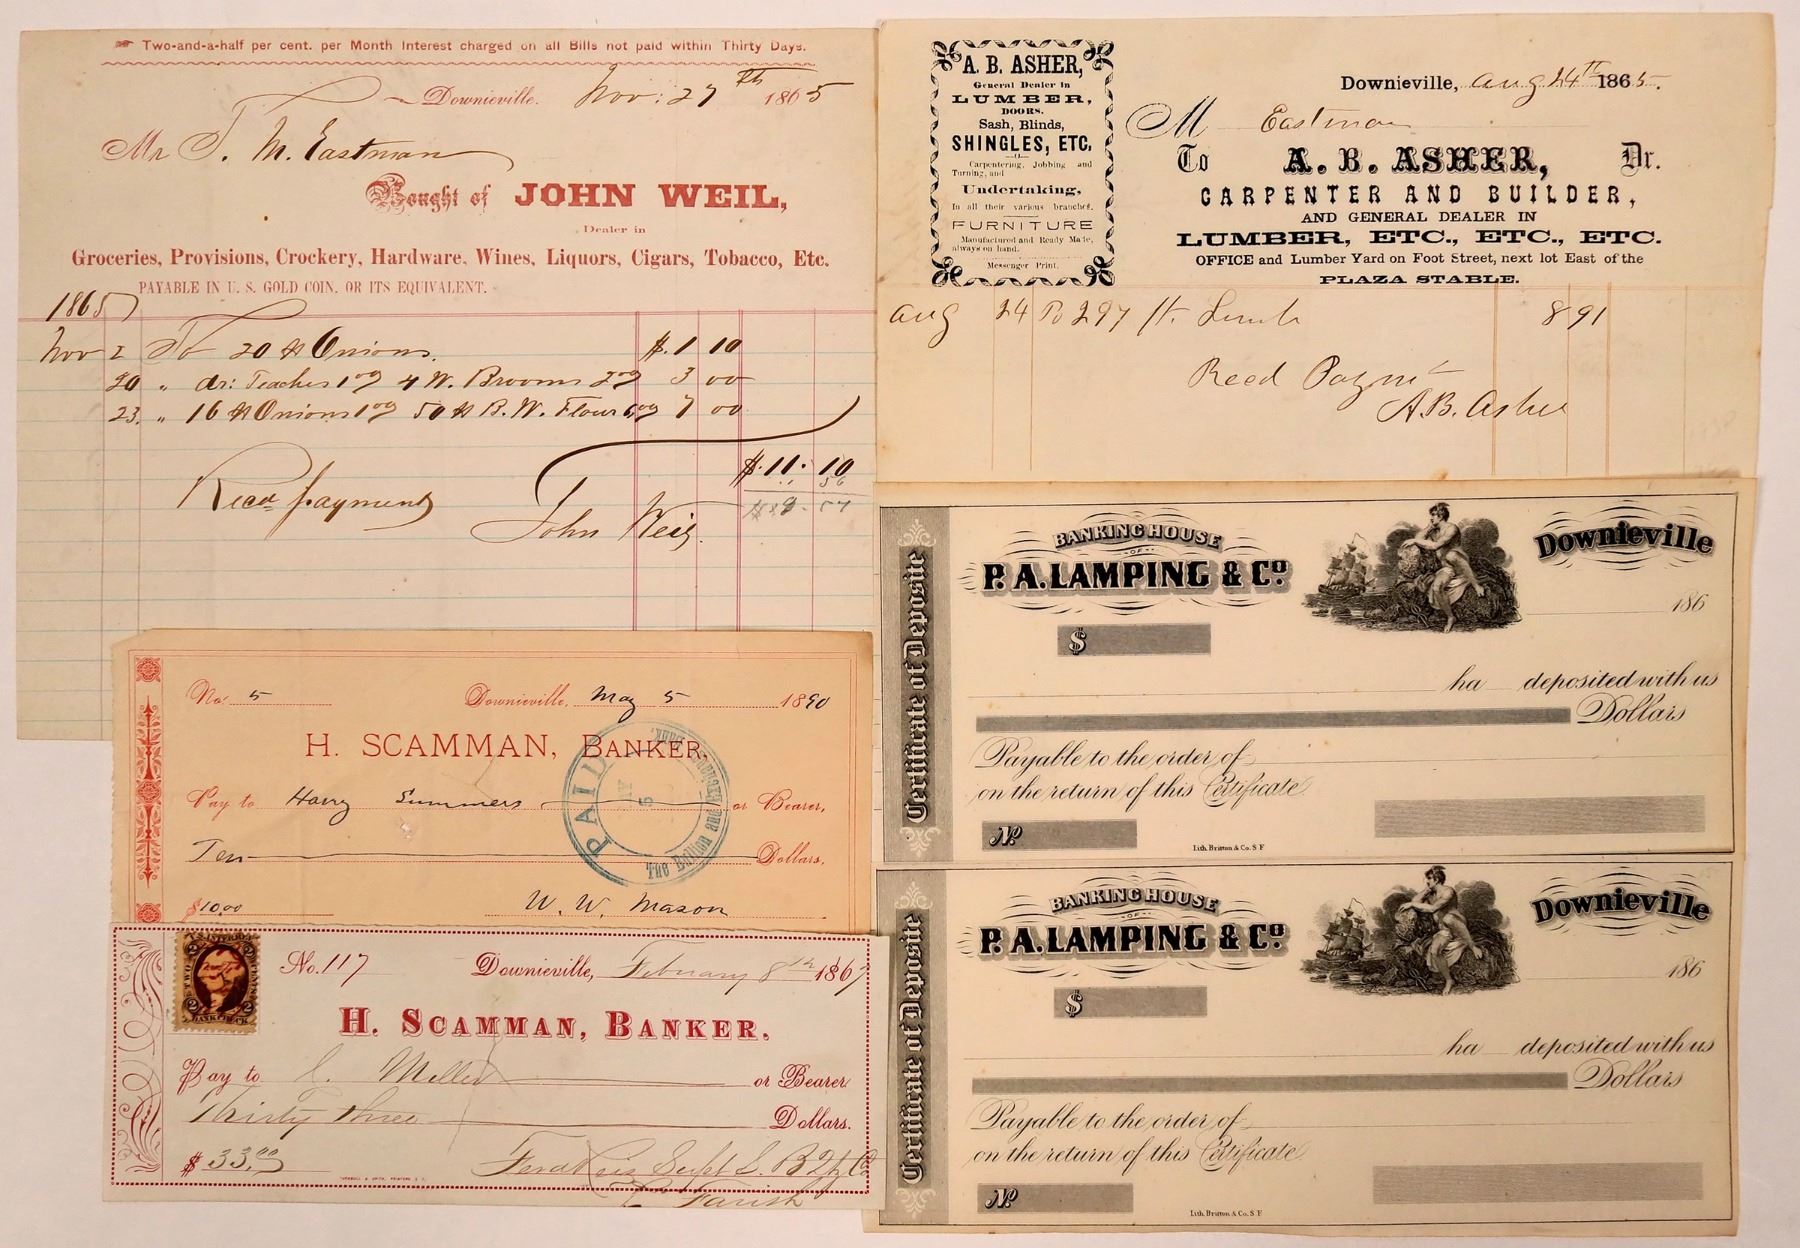 Two-and-a-half per cent. per Month Interest charged on all Bills not paid within Thirty Days.
Downieville. Nov: 27th 1865
Mr T. M. Eastman
Bought of JOHN WEIL,
Dealer in
Groceries, Provisions, Crockery, Hardware, Wines, Liquors, Cigars, Tobacco, Etc.
PAYABLE IN U. S. GOLD COIN, OR ITS EQUIVALENT.
1865
Nov 2 To 20 # Onions. $.1 10
20 " dr: Peaches 1 00 4 W. Brooms 2 00 3 00
23. " 16 # Onions 1 00 50 # B. W. Flour 6,00 7 00
$.11. 10
Recd payment
John Weil.
A. B. ASHER,
General Dealer in
LUMBER,
DOORS,
Sash, Blinds,
SHINGLES, ETC,
Carpentering, Jobbing and
Turning, and
Undertaking,
In all their various branches.
FURNITURE
Manufactured and Ready Made,
always on hand.
Messenger Print.
Downieville, Aug 24th 1865.
M Eastman
To A. B. ASHER, Dr.
CARPENTER AND BUILDER,
AND GENERAL DEALER IN
LUMBER, ETC., ETC., ETC.
OFFICE and Lumber Yard on Foot Street, next lot East of the
PLAZA STABLE.
Aug 24 To 297 ft. Lumb 8 91
Recd Paymt
A. B. Asher
No. 5 Downieville, May 5 1890
H. SCAMMAN, BANKER,
Pay to Harry Summers or Bearer,
Ten Dollars,
$10.00 W. W. Mason
PAID
5
No. 117 Downieville, February 8th 1867
U.S. INTER.
TWO
BANK CHECK
2 2
H. SCAMMAN, BANKER.
Pay to C. Miller or Bearer
Thirty Three Dollars.
$33.00
Certificate of Deposite
BANKING HOUSE
OF
P. A. LAMPING & CO.
Downieville
186
$
ha deposited with us
Dollars
Payable to the order of
on the return of this Certificate
No.
Lith. Britton & Co. S F
Certificate of Deposite
BANKING HOUSE
OF
P. A. LAMPING & CO.
Downieville
186
$
ha deposited with us
Dollars
Payable to the order of
on the return of this Certificate
No.
Lith. Britton & Co. S F